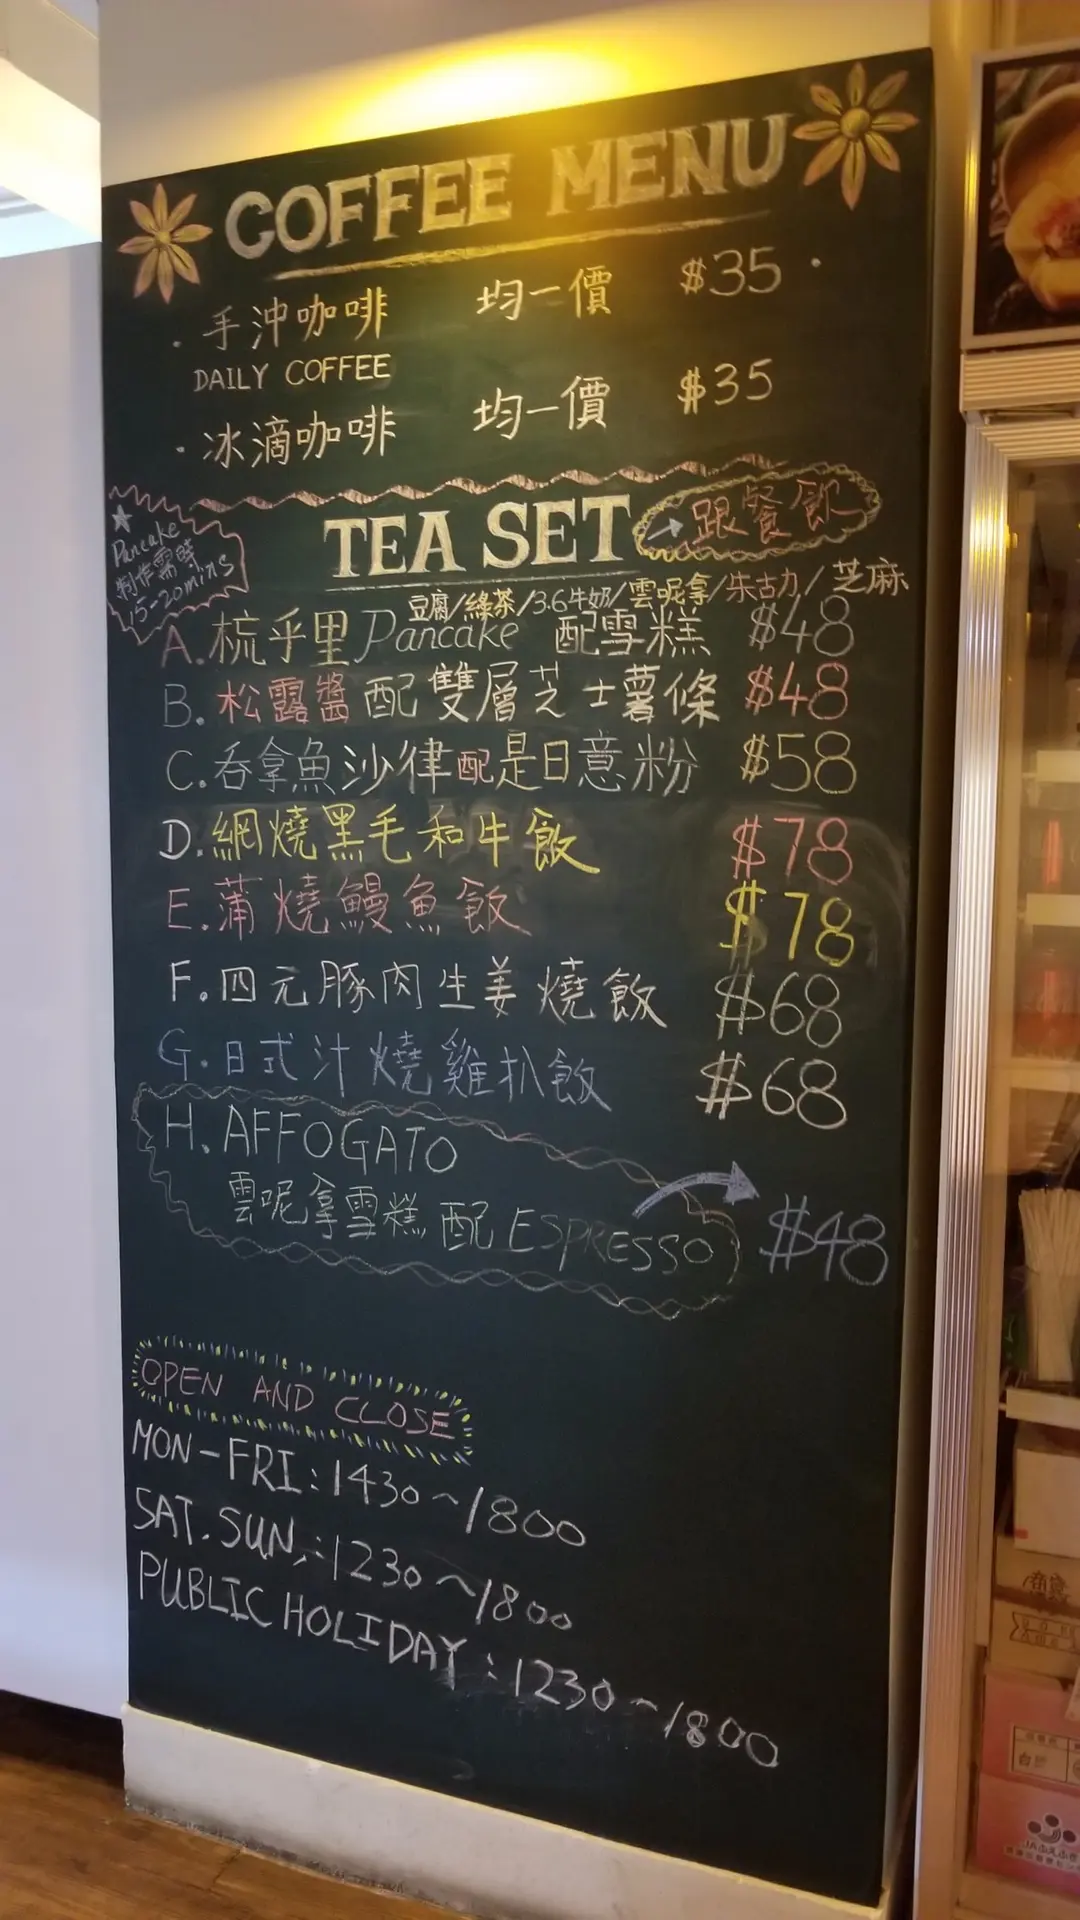 COFFEE MENU
· 手沖咖啡 均一價 $35
DAILY COFFEE
· 冰滴咖啡 均一價 $35
TEA SET 跟餐飲
Pancake
制作需時
15-20mins
豆腐/綠茶/3.6牛奶/雲呢拿/朱古力/芝麻
A. 梳乎里Pancake 配雪糕 $48
B. 松露醬配雙層芝士薯條 $48
C. 吞拿魚沙律配是日意粉 $58
D. 網燒黑毛和牛飯 $78
E. 蒲燒鰻魚飯 $78
F. 四元豚肉生姜燒飯 $68
G. 日式汁燒雞扒飯 $68
H. AFFOGATO
雲呢拿雪糕配ESPRESSO $48
OPEN AND CLOSE
MON-FRI: 1430~1800
SAT. SUN,: 1230~1800
PUBLIC HOLIDAY: 1230~1800